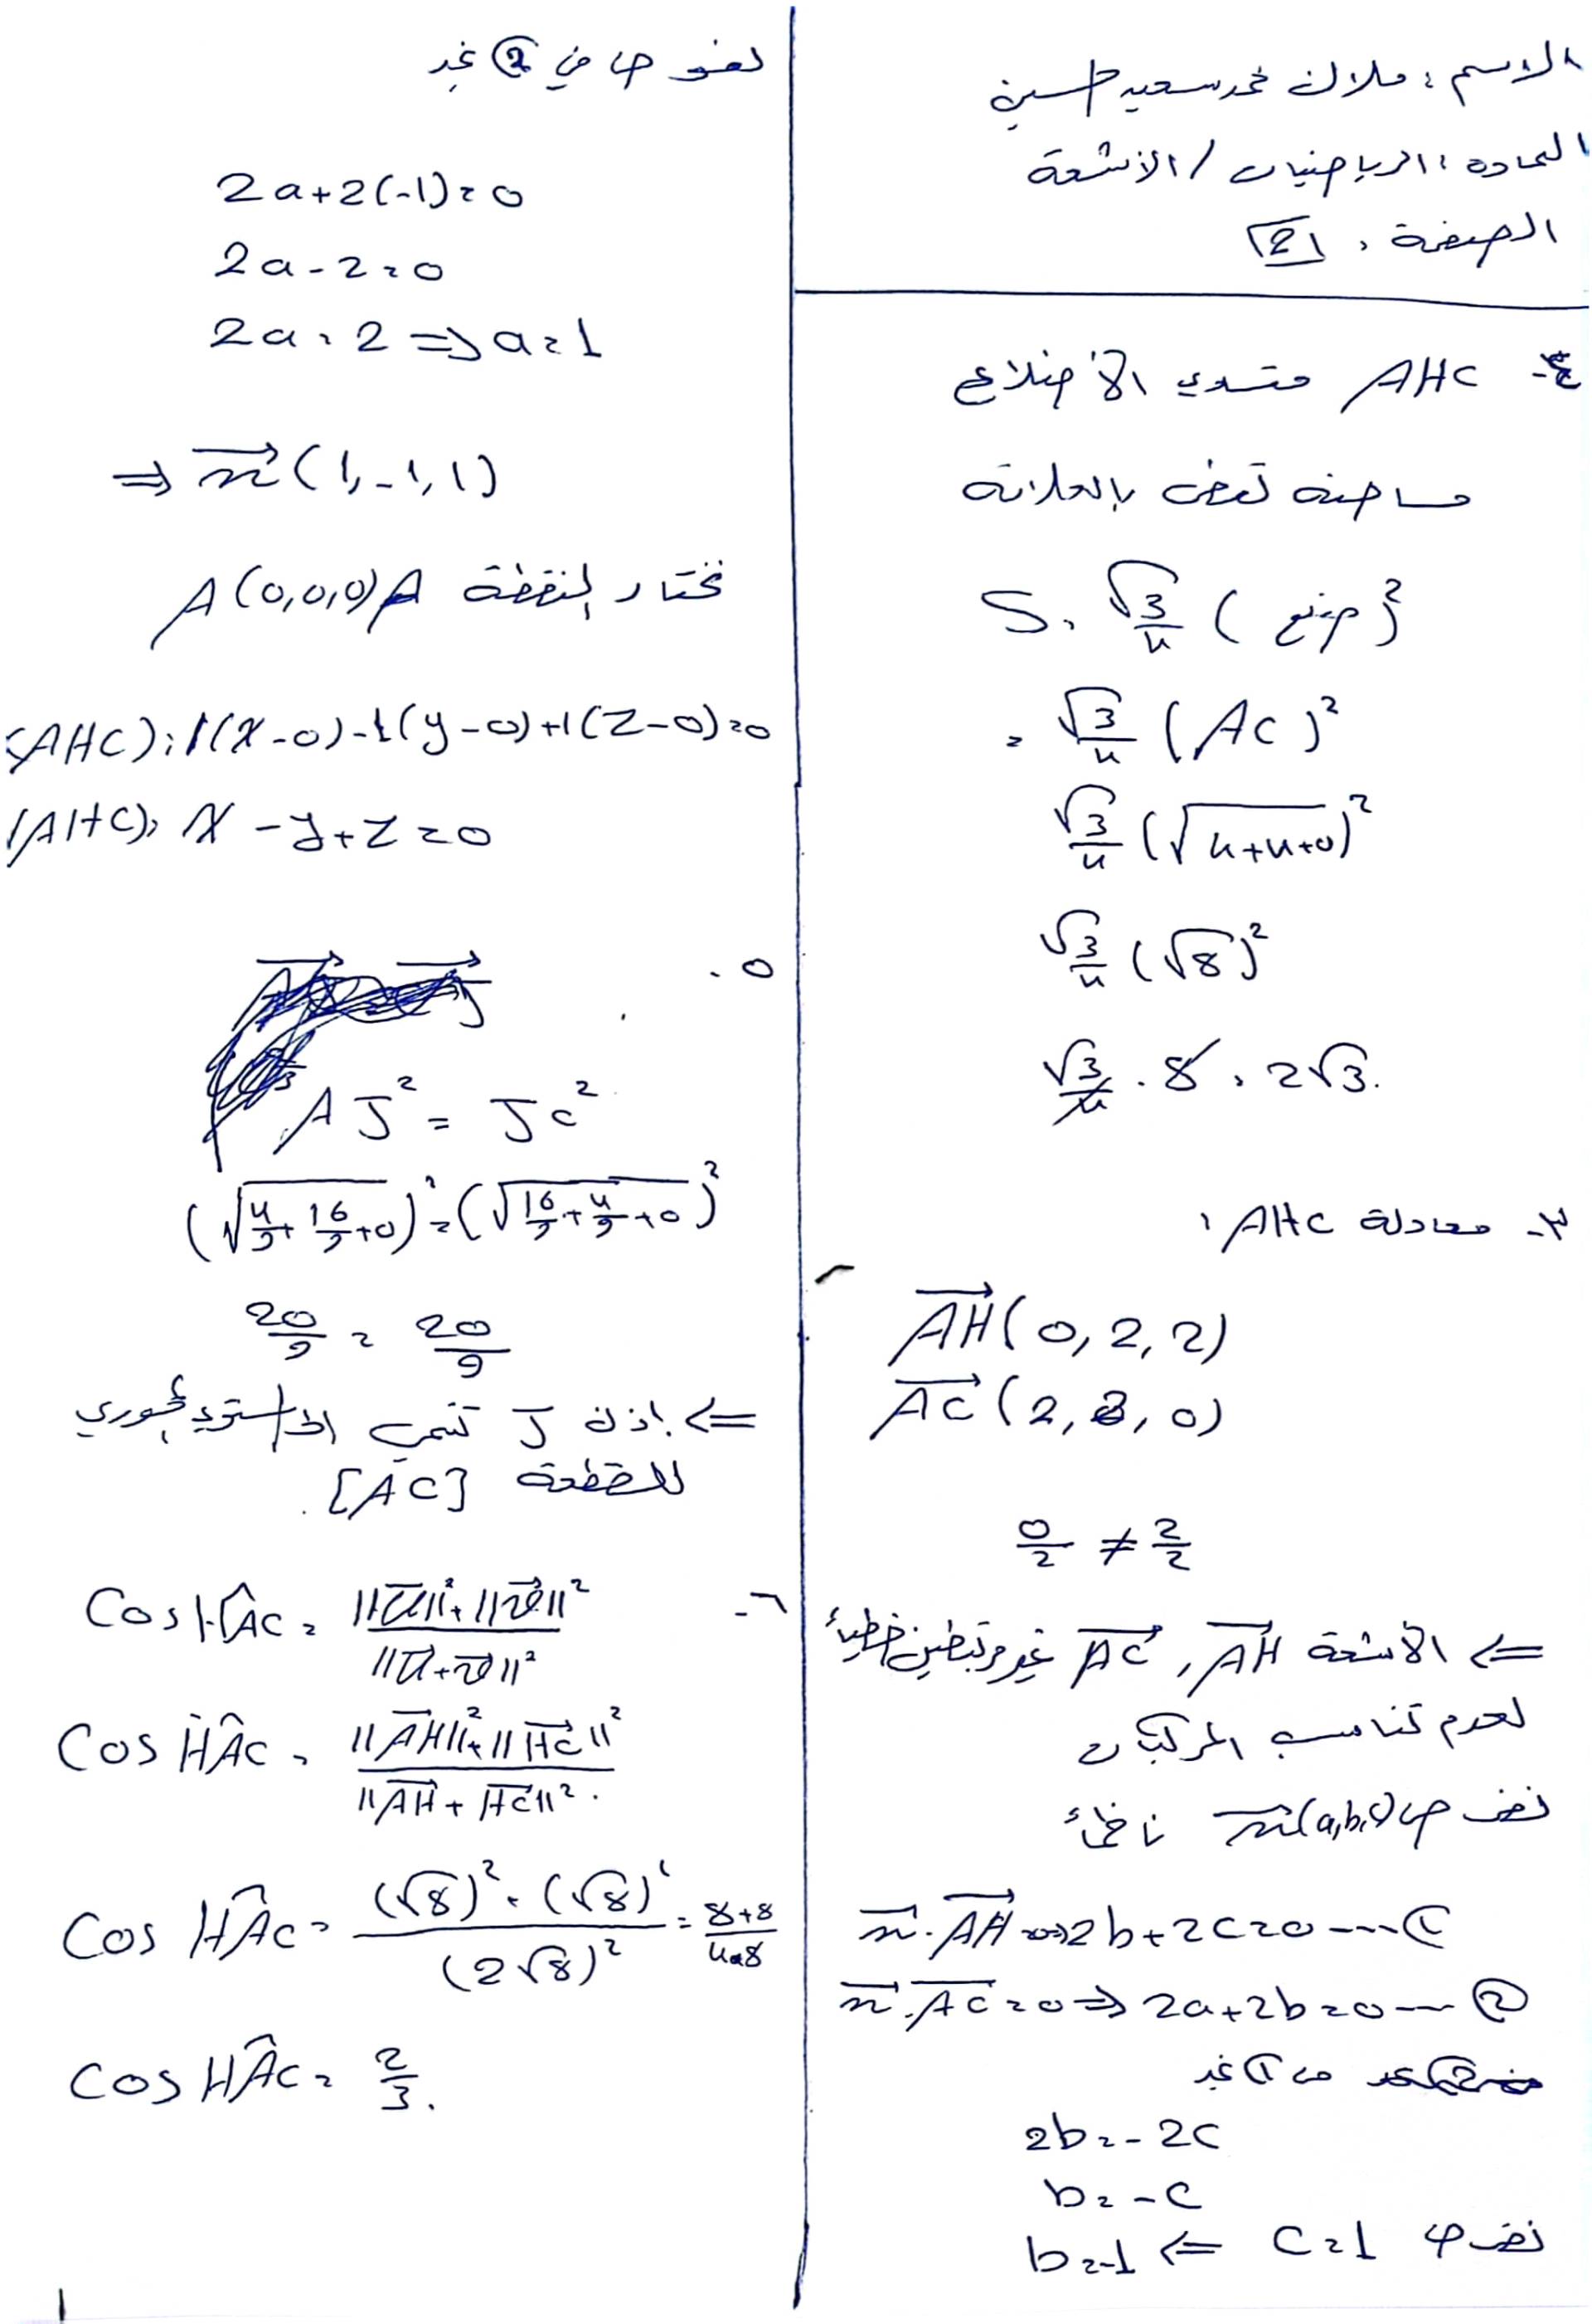 الاسم: ملاك محمد سعيد حسين
المادة: الرياضيات / الأشعة
الصفحة: 2
٤- AHC متساوي الأضلاع
مساحته تعطى بالعلاقة
S = √3/4 (ضلع)²
= √3/4 (AC)²
√3/4 (√4+4+0)²
√3/4 (√8)²
√3/4 · 8 = 2√3.
٣- معادلة AHC:
AH(0, 2, 2)
AC(2, 2, 0)
0/2 ≠ 2/2
⇐ الأشعة AH, AC غير مرتبطين خطياً
لعدم تناسب المركبات
نفرض n(a,b,c) ناظماً
n·AH=0⇒2b+2c=0 --- ①
n·AC=0⇒2a+2b=0 -- ②
من ① نجد
2b=-2c
b=-c
نفرض c=1 ⇐ b=-1
نعوض في ② نجد
2a+2(-1)=0
2a-2=0
2a=2 ⇒ a=1
⇒ n(1,-1,1)
نختار النقطة A A(0,0,0)
(AHC): 1(x-0)-1(y-0)+1(z-0)=0
(AHC): x-y+z=0
٥-
AJ² = JC²
(√4/9+16/9+0)²=(√16/9+4/9+0)²
20/9 = 20/9
⇐ إذن J تنتمي المستوي المحوري
للقطعة [AC].
٦- Cos HAC = ||u||²+||v||² / ||u+v||²
Cos HAC = ||AH||²+||HC||² / ||AH+HC||².
Cos HAC = (√8)²+(√8)² / (2√8)² = 8+8 / 4×8
Cos HAC = 2/3.